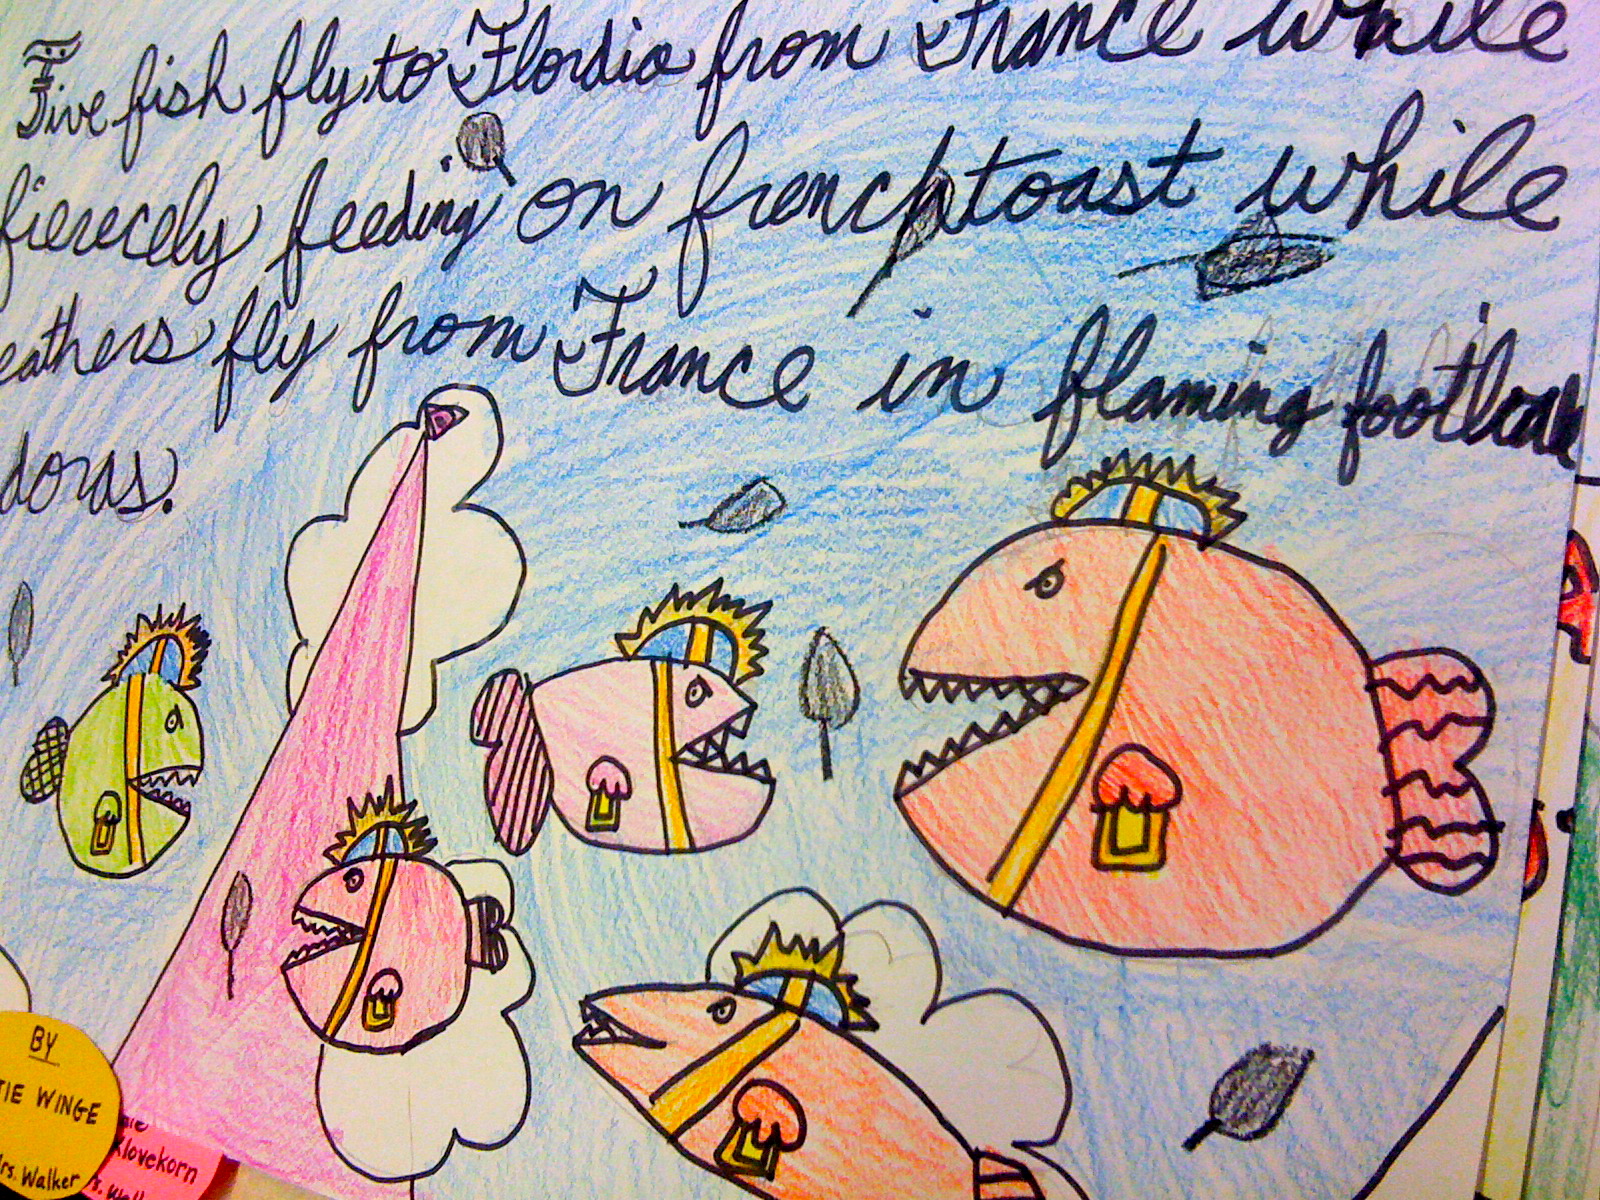 Five fish fly to Flordia from France while
fierecely feeding on french toast while
eathers fly from France in flaming
doras.
BY
TIE WINGE
Mrs. Walker
Klovekorn